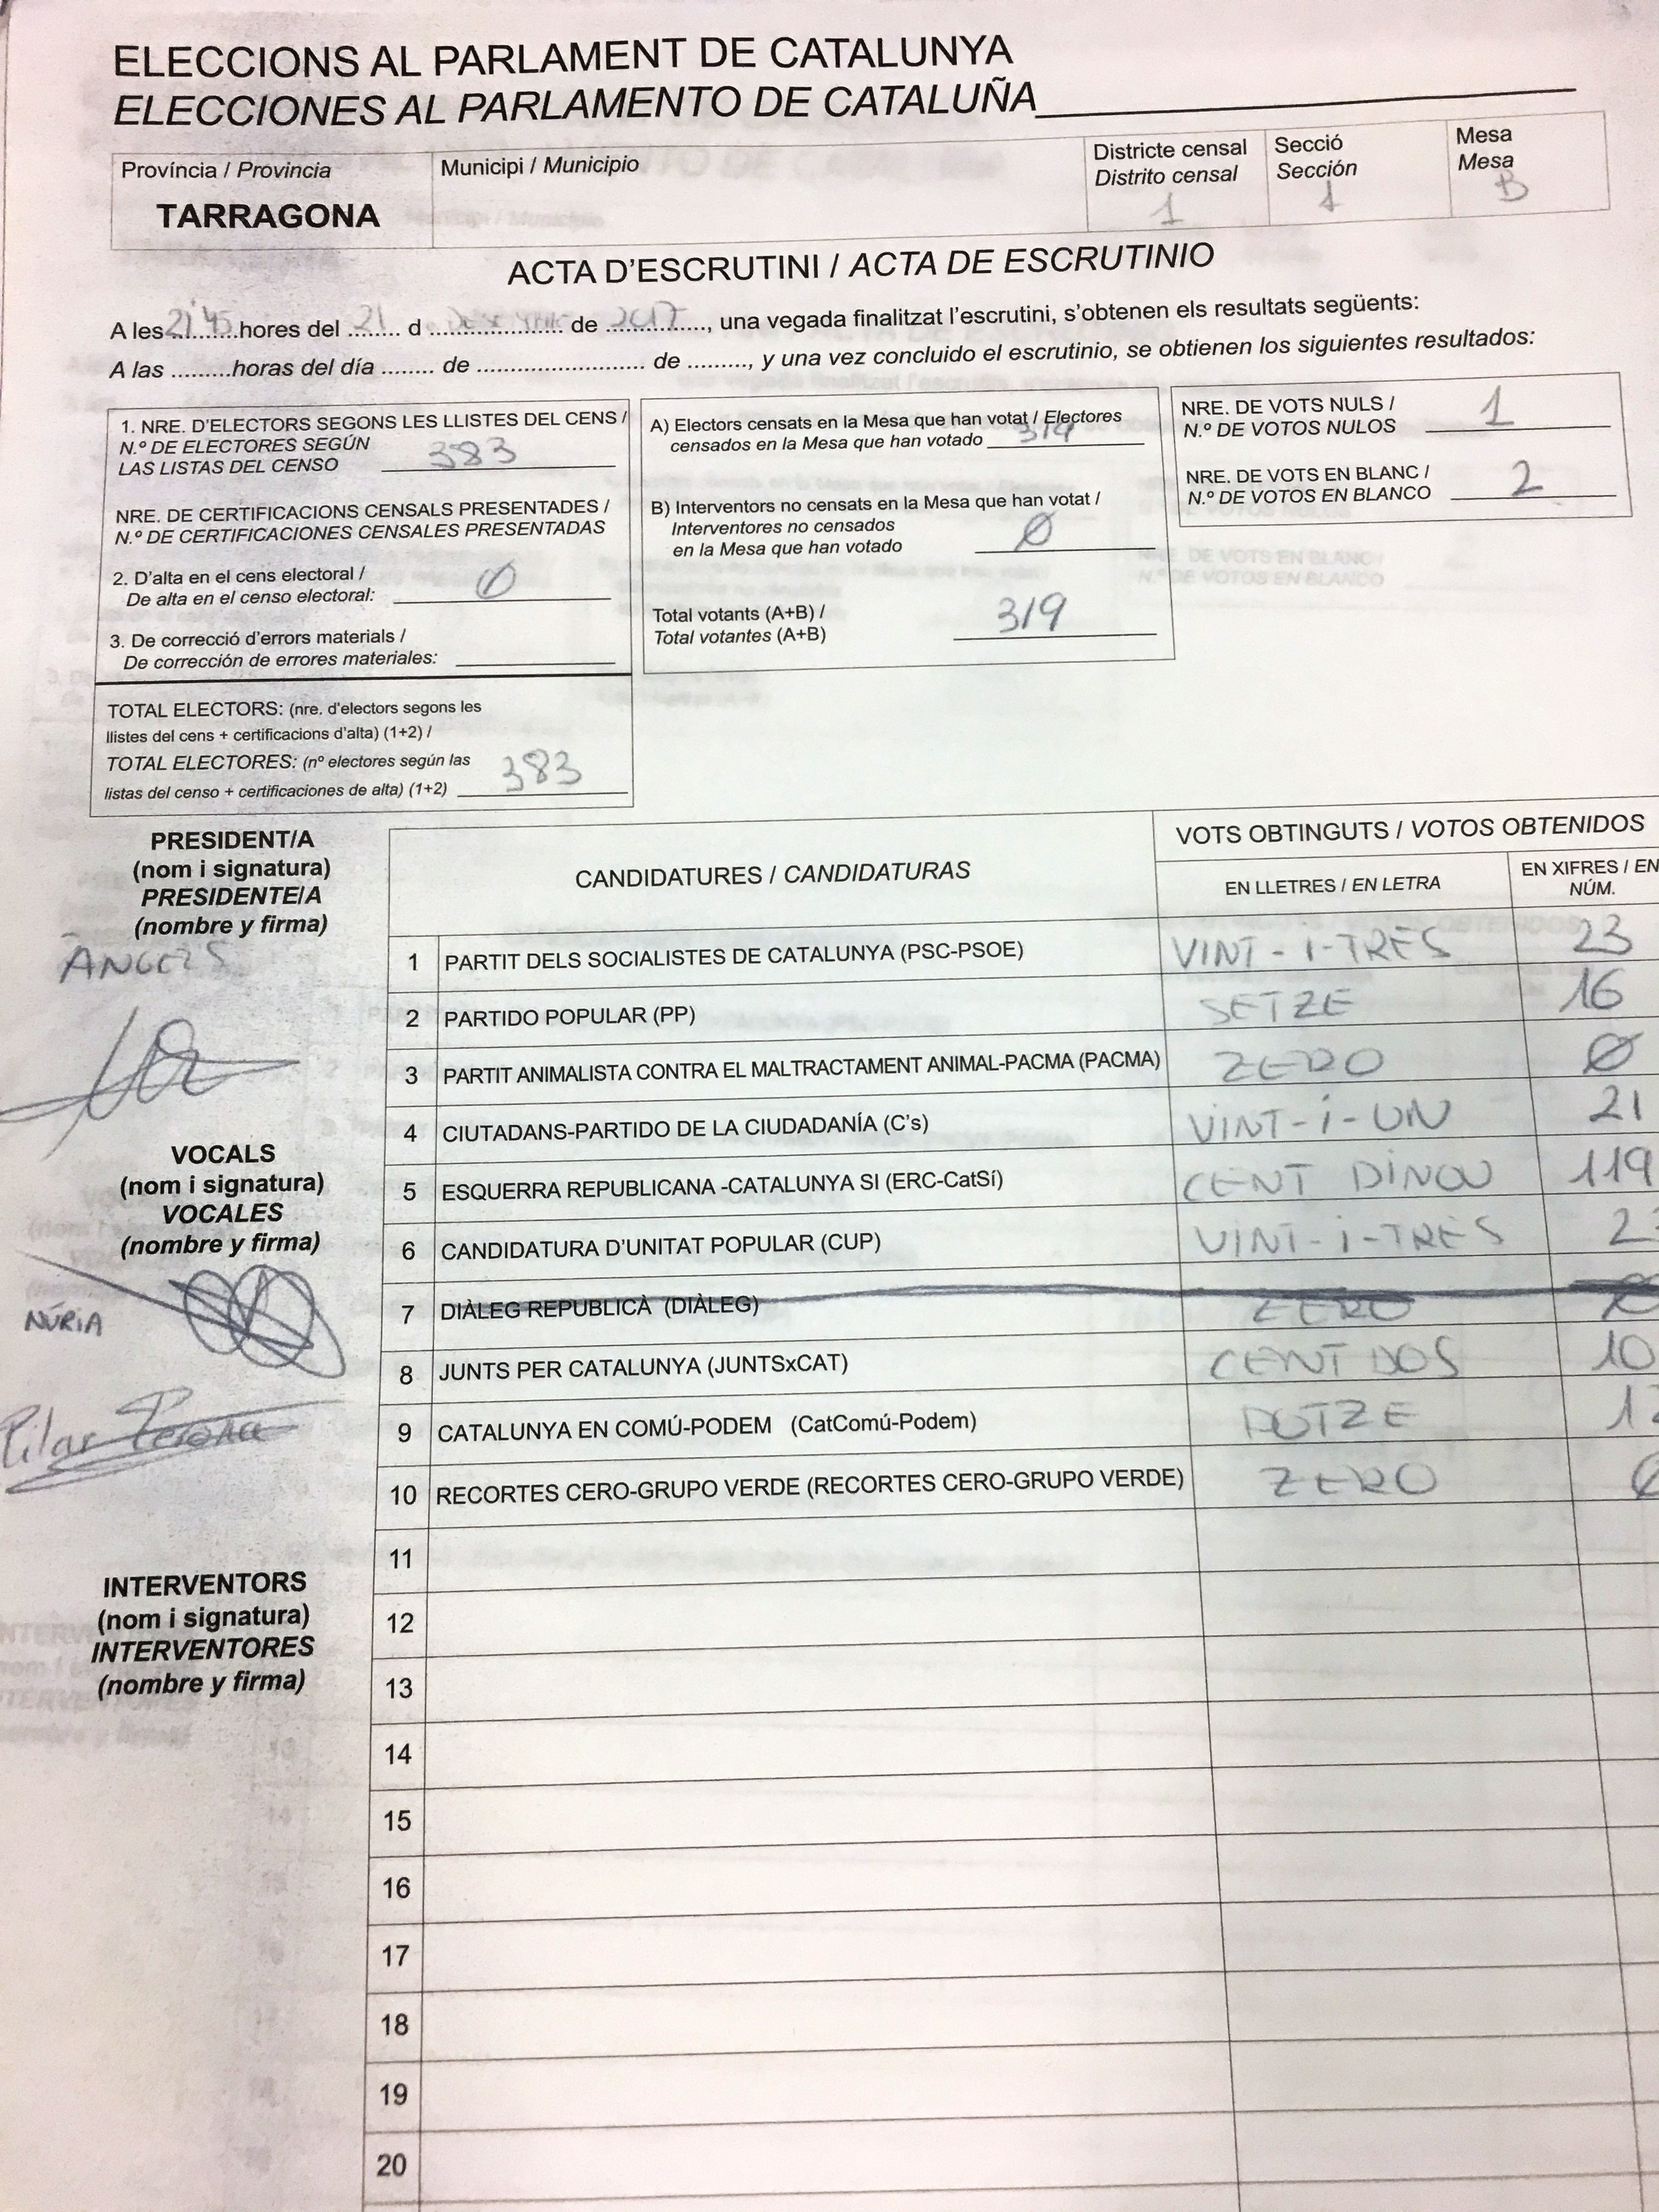 ELECCIONS AL PARLAMENT DE CATALUNYA
ELECCIONES AL PARLAMENTO DE CATALUÑA
Província / Provincia
TARRAGONA
Municipi / Municipio
Districte censal
Distrito censal
1
Secció
Sección
1
Mesa
Mesa
B
ACTA D'ESCRUTINI / ACTA DE ESCRUTINIO
A les 21'45 hores del 21 d DESEMBRE de 2017, una vegada finalitzat l'escrutini, s'obtenen els resultats següents:
A las .........horas del día ........ de ........................ de ........., y una vez concluido el escrutinio, se obtienen los siguientes resultados:
1. NRE. D'ELECTORS SEGONS LES LLISTES DEL CENS /
N.º DE ELECTORES SEGÚN
LAS LISTAS DEL CENSO 383
NRE. DE CERTIFICACIONS CENSALS PRESENTADES /
N.º DE CERTIFICACIONES CENSALES PRESENTADAS
2. D'alta en el cens electoral /
De alta en el censo electoral: 0
3. De correcció d'errors materials /
De corrección de errores materiales:
TOTAL ELECTORS: (nre. d'electors segons les
llistes del cens + certificacions d'alta) (1+2) /
TOTAL ELECTORES: (nº electores según las
listas del censo + certificaciones de alta) (1+2) 383
A) Electors censats en la Mesa que han votat / Electores
censados en la Mesa que han votado 319
B) Interventors no censats en la Mesa que han votat /
Interventores no censados
en la Mesa que han votado Ø
Total votants (A+B) /
Total votantes (A+B) 319
NRE. DE VOTS NULS /
N.º DE VOTOS NULOS 1
NRE. DE VOTS EN BLANC /
N.º DE VOTOS EN BLANCO 2
PRESIDENT/A
(nom i signatura)
PRESIDENTE/A
(nombre y firma)
ÀNGELS
VOCALS
(nom i signatura)
VOCALES
(nombre y firma)
NÚRIA
Pilar
INTERVENTORS
(nom i signatura)
INTERVENTORES
(nombre y firma)
CANDIDATURES / CANDIDATURAS
VOTS OBTINGUTS / VOTOS OBTENIDOS
EN LLETRES / EN LETRA
EN XIFRES / EN
NÚM.
1 PARTIT DELS SOCIALISTES DE CATALUNYA (PSC-PSOE) VINT-I-TRES 23
2 PARTIDO POPULAR (PP) SETZE 16
3 PARTIT ANIMALISTA CONTRA EL MALTRACTAMENT ANIMAL-PACMA (PACMA) ZERO Ø
4 CIUTADANS-PARTIDO DE LA CIUDADANÍA (C's) VINT-i-UN 21
5 ESQUERRA REPUBLICANA -CATALUNYA SI (ERC-CatSí) CENT DINOU 119
6 CANDIDATURA D'UNITAT POPULAR (CUP) VINT-i-TRES 2
7 DIÀLEG REPUBLICÀ (DIÀLEG) ZERO Ø
8 JUNTS PER CATALUNYA (JUNTSxCAT) CENT DOS 10
9 CATALUNYA EN COMÚ-PODEM (CatComú-Podem) DOTZE 12
10 RECORTES CERO-GRUPO VERDE (RECORTES CERO-GRUPO VERDE) ZERO Ø
11
12
13
14
15
16
17
18
19
20